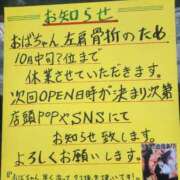 お知らせ
おばちゃん左肩骨折のため
10月中旬位まで
休業させていただきます。
次回OPEN日時が決まり次第
店頭POPやSNSにて
お知らせ致します。
よろしくお願いします。
おばちゃん